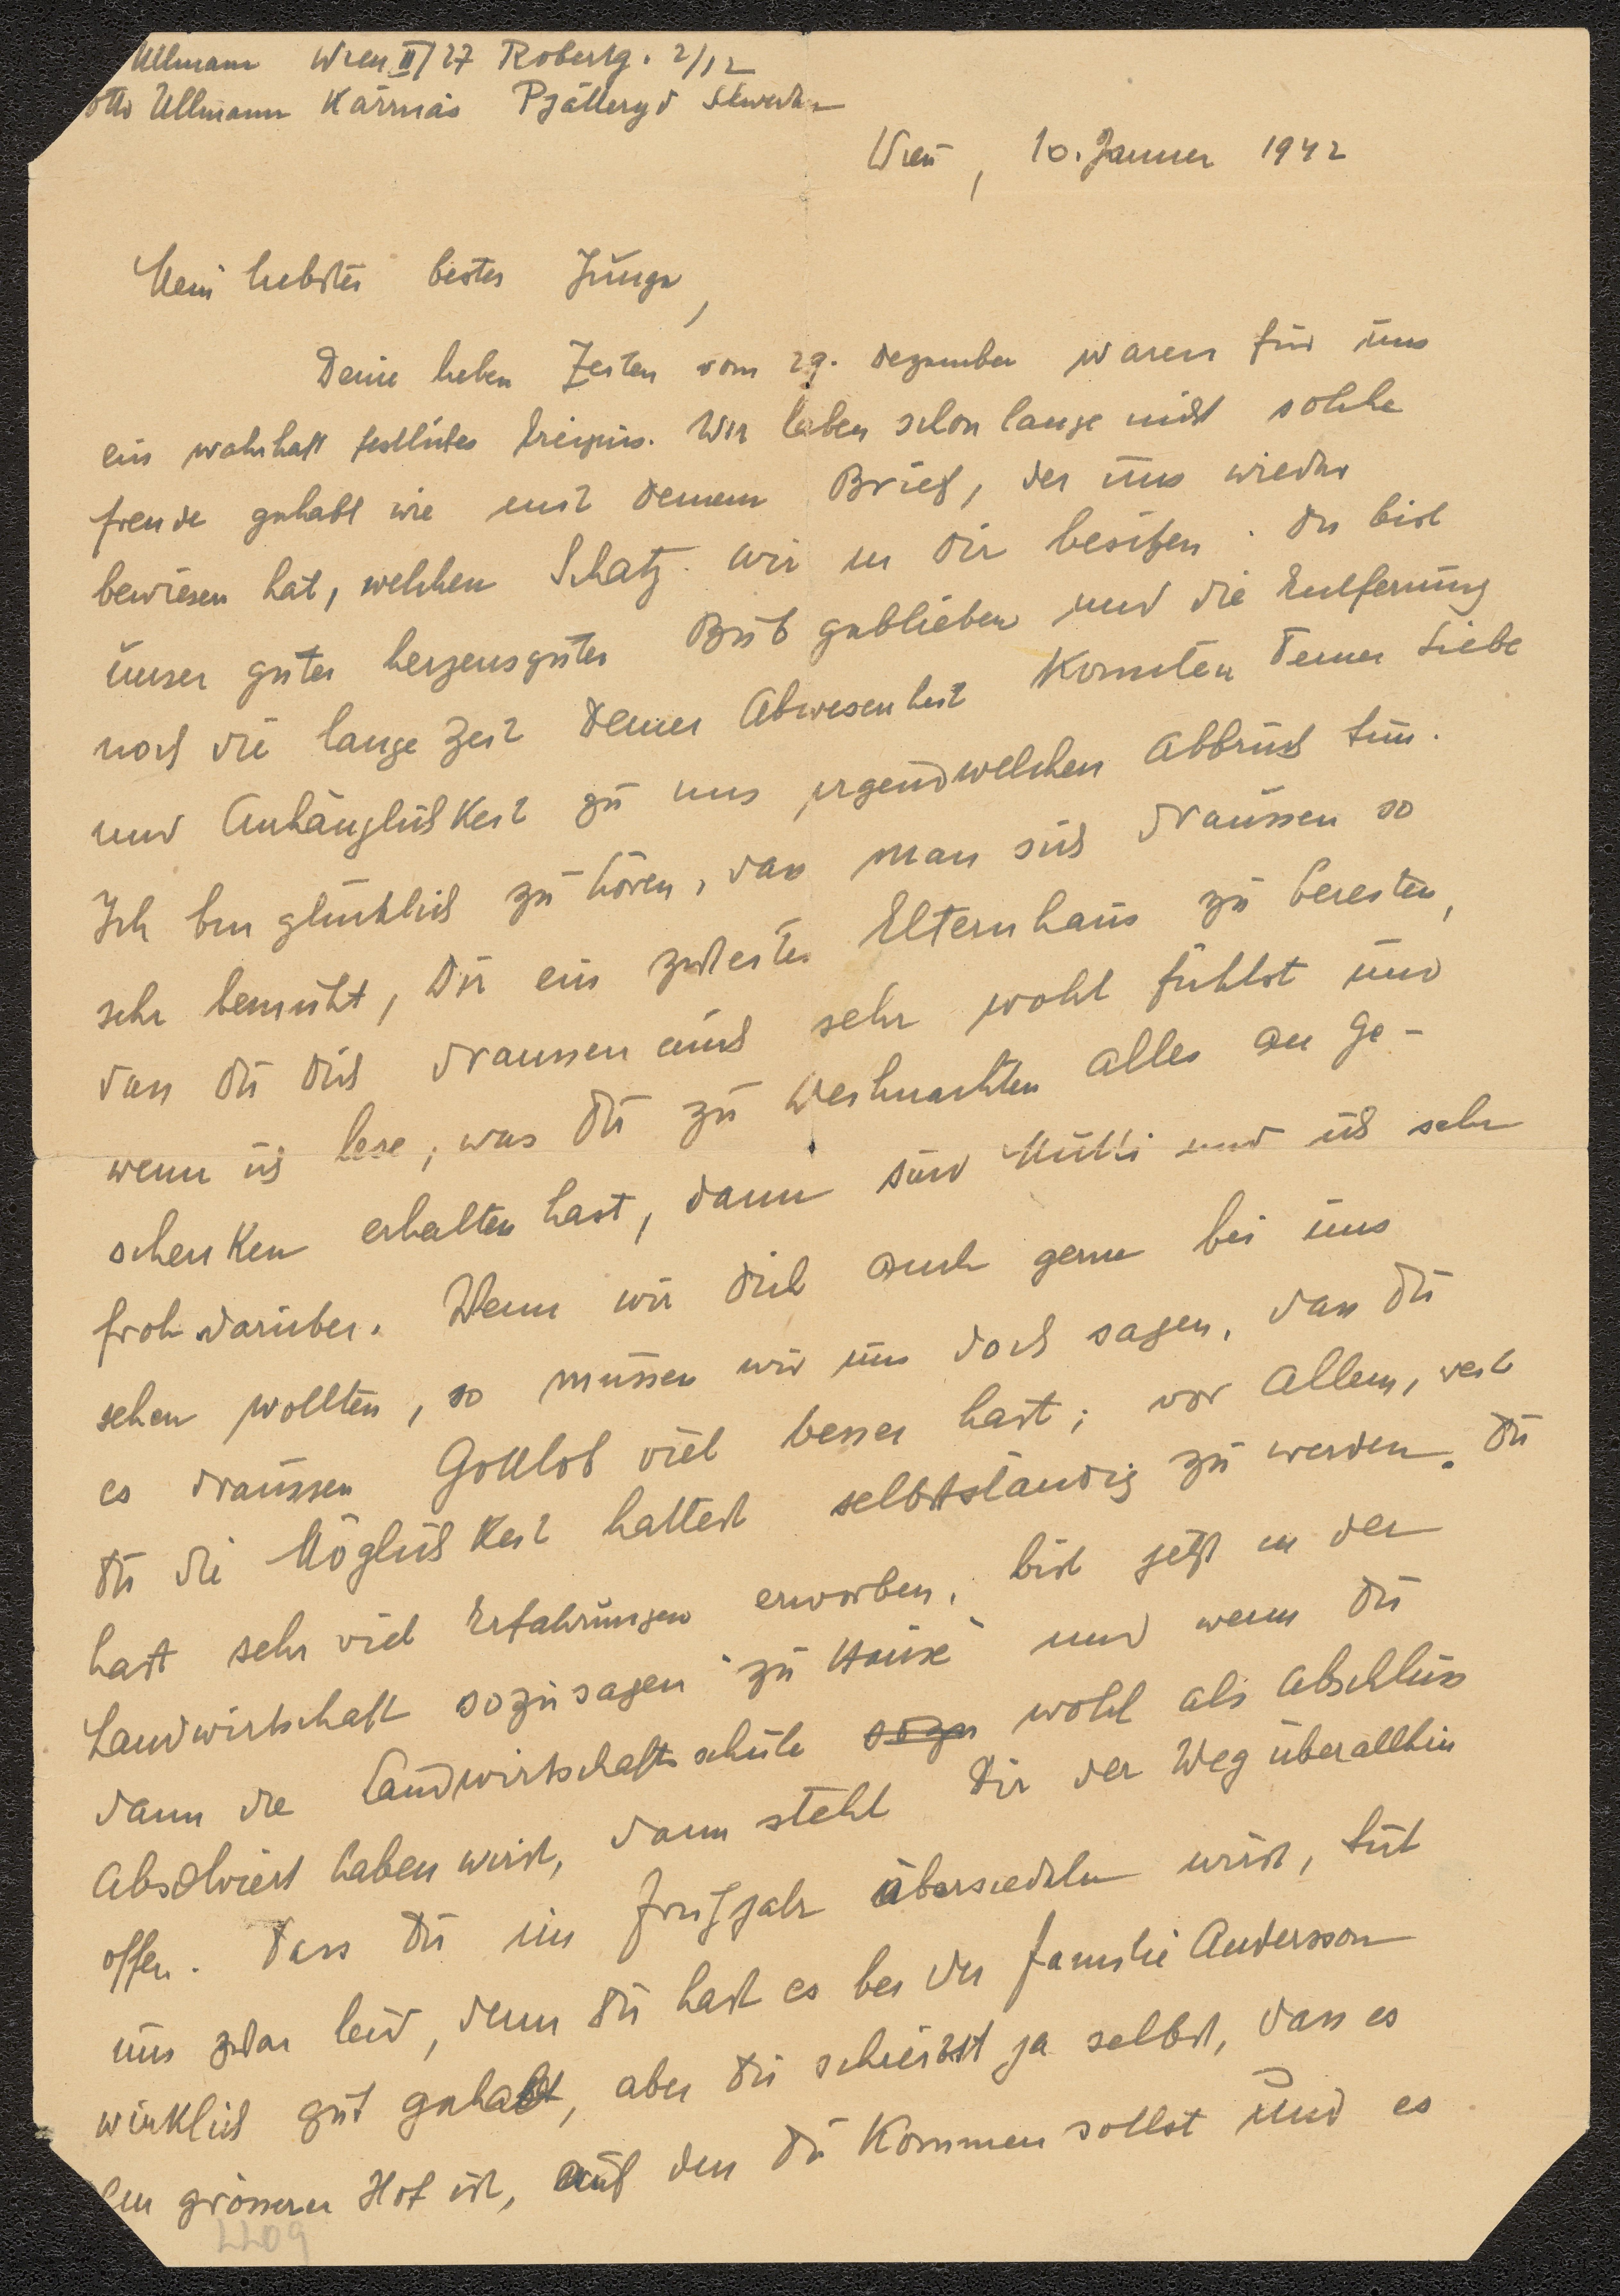 Ullmann Wien II/27 Robertg. 2/12
Otto Ullmann Kärrnäs Pjätteryd Schweden
Wien, 10. Jänner 1942
Mein liebster bester Junge,
Deine lieben Zeilen vom 29. Dezember waren für uns
ein wahrhaft festliches Ereignis. Wir haben schon lange nicht solche
Freude gehabt wie mit Deinem Brief, der uns wieder
bewiesen hat, welchen Schatz wir in Dir besitzen. Du bist
unser guter herzensguter Bub geblieben und die Entfernung
noch die lange Zeit Deiner Abwesenheit konnten Deiner Liebe
und Anhänglichkeit zu uns irgendwelchen Abbruch tun.
Ich bin glücklich zu hören, dass man sich draussen so
sehr bemüht, Dir ein zweites Elternhaus zu bereiten,
dass Du Dich draussen auch sehr wohl fühlst und
wenn ich lese, was Du zu Weihnachten alles an Ge-
schenken erhalten hast, dann sind Mutti und ich sehr
froh darüber. Wenn wir Dich auch gerne bei uns
sehen wollten, so müssen wir uns doch sagen, dass Du
es draussen Gottlob viel besser hast; vor Allem, weil
Du die Möglichkeit hattest selbstständig zu werden. Du
hast sehr viel Erfahrungen erworben, bist jetzt in der
Landwirtschaft sozusagen "zu Hause" und wenn Du
dann die Landwirtschaftsschule sogu wohl als Abschluss
absolviert haben wirst, dann steht Dir der Weg überallhin
offen. Dass Du im Frühjahr übersiedeln wirst, tut
uns zwar leid, denn Du hast es bei der Familie Andersson
wirklich gut gehabt, aber Du schreibst ja selbst, dass es
ein grösserer Hof ist, auf den Du kommen sollst und es
2209